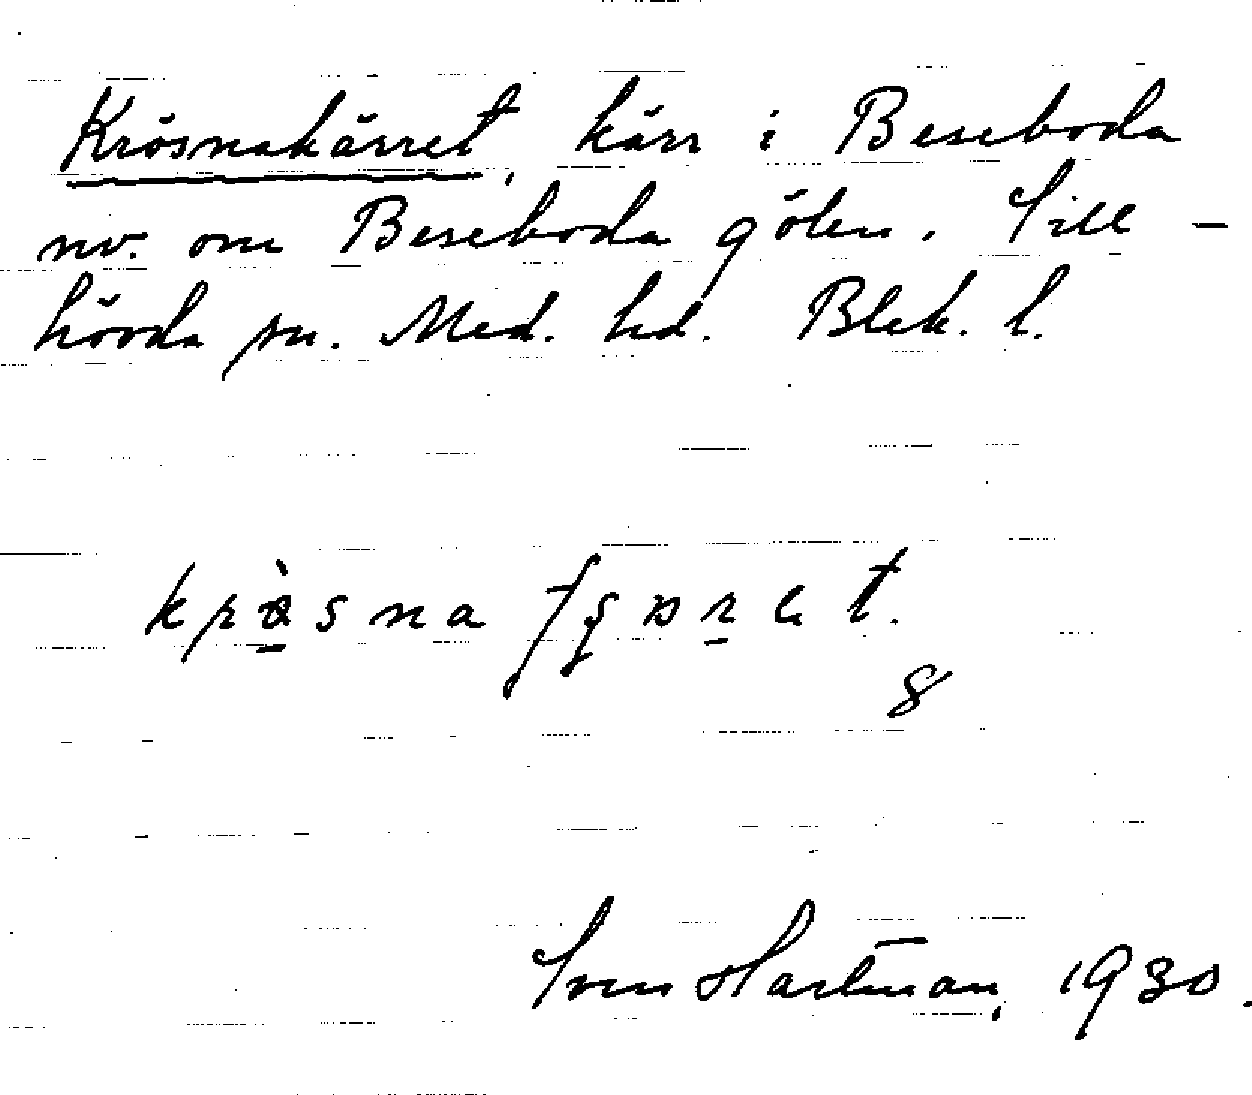 Krösnakärret, kärr i Beseboda
nv. om Beseboda gölen. Till-
hövda sn. Med. hd. Blek. l.
8
Sven Hartman, 1930.